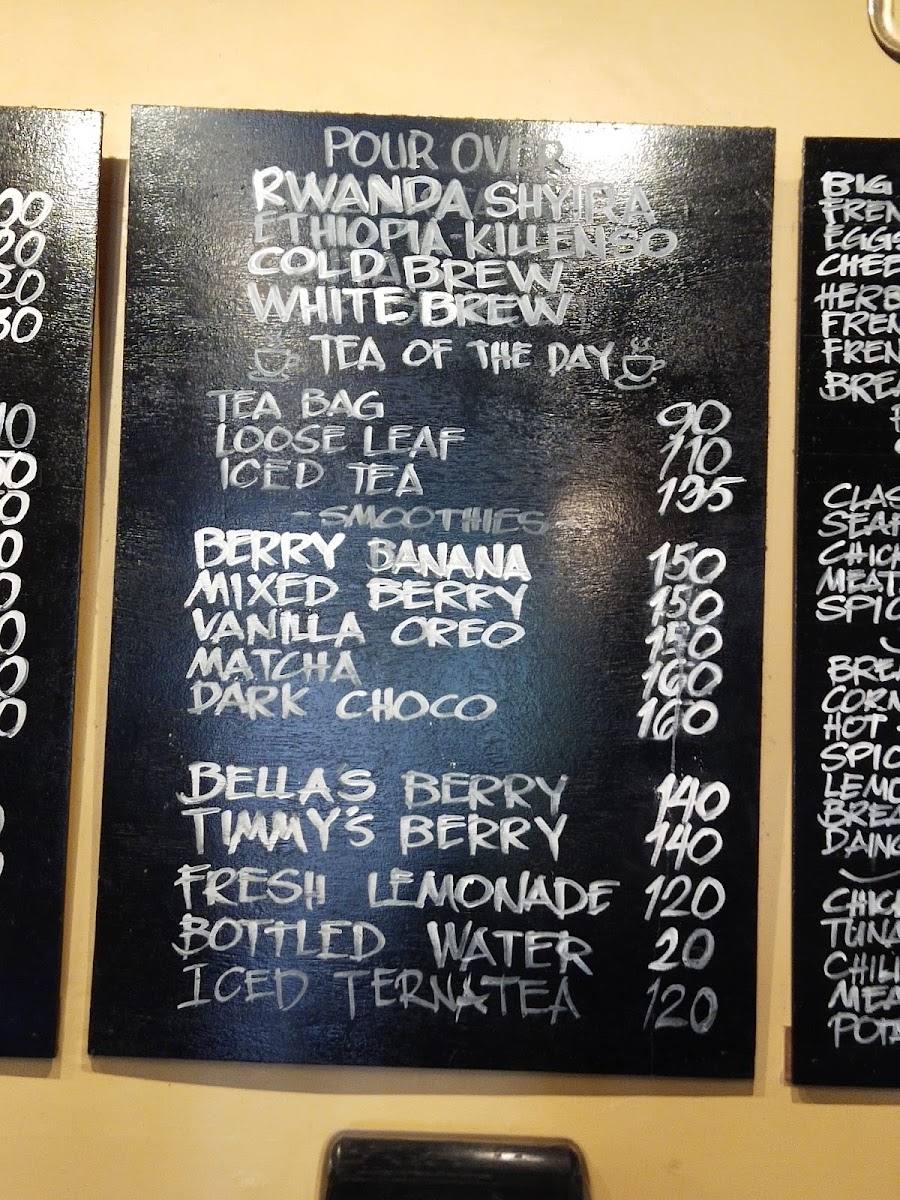 POUR OVER
RWANDA SHYIRA
ETHIOPIA KILLENSO
COLD BREW
WHITE BREW
TEA OF THE DAY
TEA BAG 90
LOOSE LEAF 110
ICED TEA 135
- SMOOTHIES -
BERRY BANANA 150
MIXED BERRY 150
VANILLA OREO 150
MATCHA 160
DARK CHOCO 160
BELLA'S BERRY 140
TIMMY'S BERRY 140
FRESH LEMONADE 120
BOTTLED WATER 20
ICED TERNATEA 120
BIG
FREN
EGGS
CHEE
HERB
FREN
FREN
BREA
CLAS
SEAF
CHICK
MEAT
SPIC
BREA
CORN
HOT
SPIC
LEMO
BREA
DAING
CHICK
TUNA
CHILI
MEA
POTA